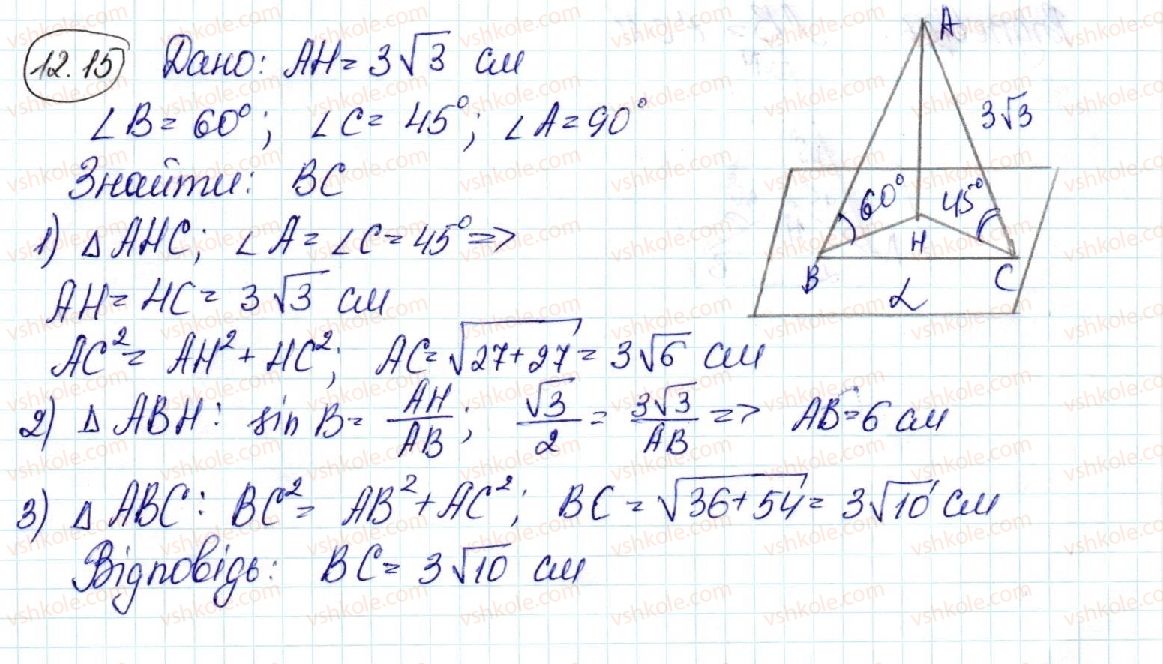 12.15 Дано: AH = 3√3 см
∠B = 60°; ∠C = 45°; ∠A = 90°
Знайти: BC
1) △AHC; ∠A = ∠C = 45° =>
AH = HC = 3√3 см
AC² = AH² + HC²; AC = √(27+27) = 3√6 см
2) △ABH: sin B = AH/AB; √3/2 = 3√3/AB => AB = 6 см
3) △ABC: BC² = AB² + AC²; BC = √(36+54) = 3√10 см
Відповідь: BC = 3√10 см
A
3√3
60° 45°
H
B C
α
vshkole.com